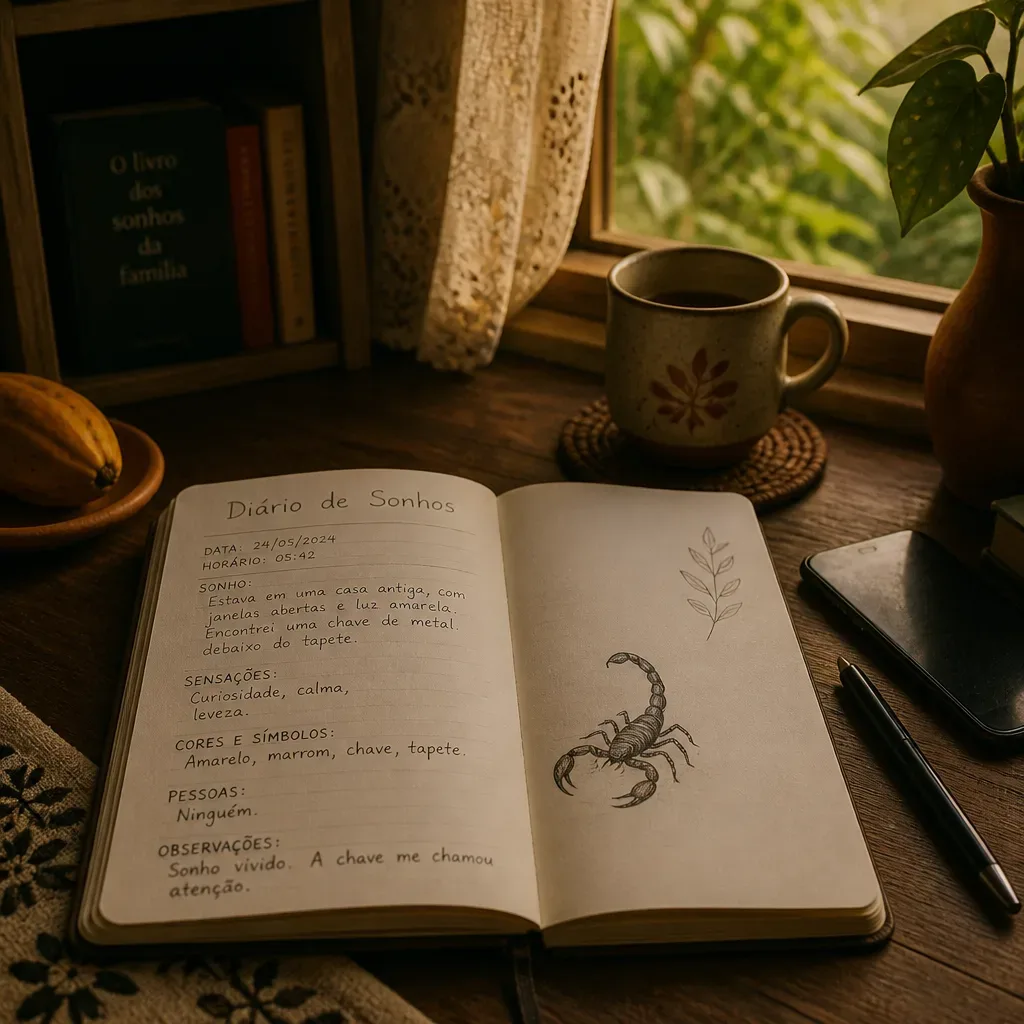 O livro
dos
sonhos
da
família
Diário de Sonhos
DATA: 24/05/2024
HORÁRIO: 05:42
SONHO:
Estava em uma casa antiga, com
janelas abertas e luz amarela.
Encontrei uma chave de metal.
debaixo do tapete.
SENSAÇÕES:
Curiosidade, calma,
leveza.
CORES E SÍMBOLOS:
Amarelo, marrom, chave, tapete.
PESSOAS:
Ninguém.
OBSERVAÇÕES:
Sonho vívido. A chave me chamou
atenção.